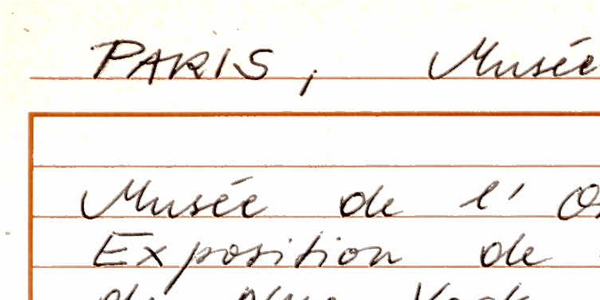 PARIS, Musée
Musée de l'
Exposition de